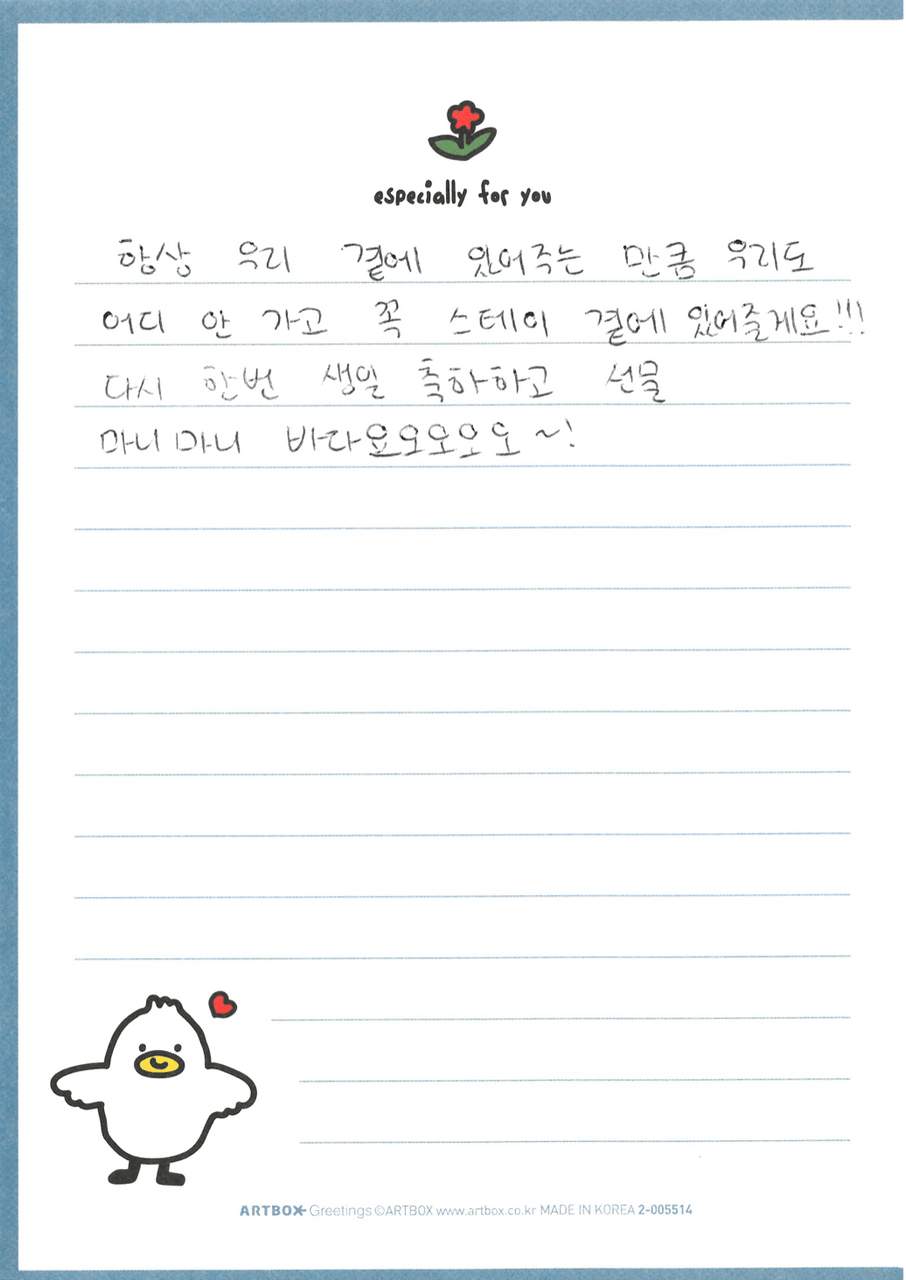 especially for you
항상 우리 곁에 있어주는 만큼 우리도
어디 안 가고 꼭 스테이 곁에 있어줄게요!!!
다시 한번 생일 축하하고 선물
마니마니 바다요오오오오~!
ARTBOX Greetings ©ARTBOX www.artbox.co.kr MADE IN KOREA 2-005514